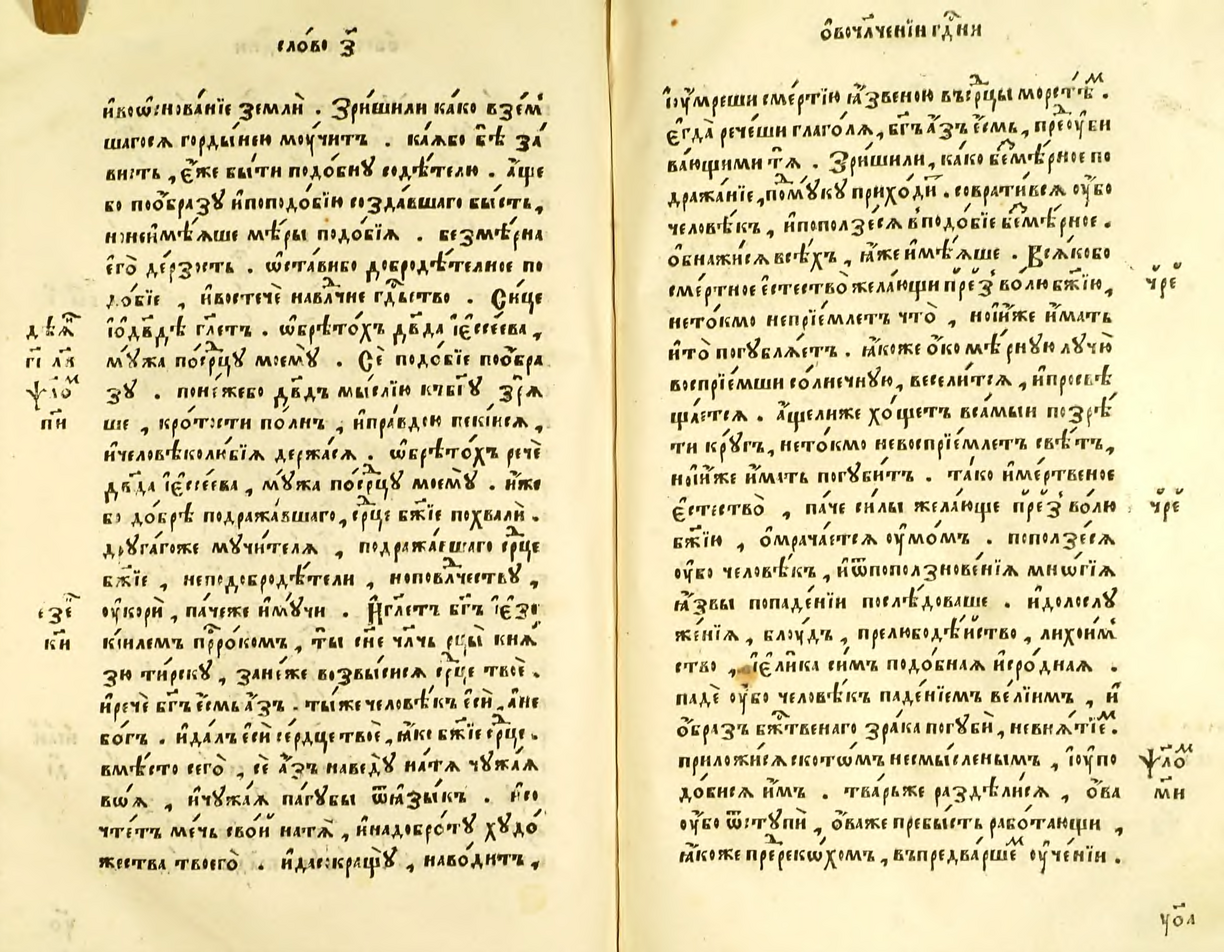 сло́во з҃
и҆вѡ҆снова́нїе землѝ . Зри́шили ка́ко взе́м
шагося горды́нею мѹ́читъ . ка́ѧбо бѣ̀ за́
вить , є҆́же бы́ти подо́бнꙋ содѣ́телю . а҆́ще
бо поо́бразꙋ и҆поподо́бїю созда́вшаго бы́сть ,
нонеи҆мѣ́ѧше мѣ́ры подо́бїѧ . безмѣ́рна
є҆го̀ де́рзость . ѡ҆ста́вибо добродѣ́телное по
до́бїе , и҆востечѐ нався́чне гдⷭ҇ьство . Си́це
і҆одв҃дѣ гл҃етъ . ѡ҆брѣто́хъ дв҃да і҆ессе́ева ,
мꙋ́жа посрⷣцꙋ моемꙋ̀ . Сѐ подо́бїе поо́бра
зꙋ . поне́жебо дв҃дъ мы́слїю къбг҃ꙋ зрѧ́
ше , кро́тости по́лнъ , и҆пра́вдою пекі́исѧ ,
и҆человѣколю́бїѧ держа́сѧ . ѡ҆брѣто́хъ речѐ
дв҃да і҆ессе́ева , мꙋ́жа посрⷣцꙋ моемꙋ̀ . и҆́же
бо до́брѣ подража́вшаго , срⷣце бж҃їе похвалѝ .
дрꙋга́гоже мꙋчи́телѧ , подража́вшаго срⷣце
бж҃їе , неподобродѣ́тели , ноповла́чествꙋ ,
ѹ҆корѝ , па́чеже и҆мꙋ́чи . И҆гл҃етъ бг҃ъ і҆езе
кі́илемъ прⷪ҇ро́комъ , ты̀ сн҃е чл҃чь рцы̀ кнѧ́
зю ти́рскꙋ , зане́же возвы́сисѧ срⷣце твоѐ .
и҆речѐ бг҃ъ є҆́смь а҆́зъ . ты́же человѣ́къ є҆сѝ , ане
бо́гъ . и҆да́лъ є҆сѝ се́рдце твоѐ , ꙗ҆́ко бж҃їе срⷣце .
вмѣ́сто сего̀ , сѐ а҆́зъ наведꙋ̀ натѧ̀ чꙋжа́ѧ
воѧ̀ , и҆чꙋжа́ѧ па́гꙋбы ѿꙗ҆зы́къ . и҆со
чте́тъ ме́чь сво́й натѧ̀ , и҆надобро́тꙋ хꙋдо́
жества твоего̀ . и҆да̀скращꙋ̀ , наво́дитъ ,
дѣѧ҃
гі҃ лѧ
ѱло́ᴹ
пи҃
езе҃
ки҃
ѡ҆вочл҃ченїи гдⷭ҇ни
і҆ѹ҆́мреши сме́ртїю ꙗ҆́звеною въсрⷣцы морстѣ́м .
є҆гда̀ рече́ши глаго́лѧ , бг҃ъ а҆́зъ є҆́смь , преѹ҆би
ва́ющими тѧ̀ . Зри́шили , ка́ко бе́змѣ́рное по
дража́нїе , помꙋ́кꙋ прихо́ди . соврати́всѧ ѹ҆́бо
человѣ́къ , и҆поползе́сѧ вподо́бїе безмѣ́рное .
ѡ҆бнажи́сѧ всѣ́хъ , ꙗ҆́же и҆мѣ́ѧше . Всѧ́кобо
сме́ртное є҆стество̀ жела́ющи през̾ во́лю бж҃їю ,
нето́кмо непрїе́млетъ что̀ , нои҆́же и҆́мать
и҆то̀ погꙋблѧ́етъ . ꙗ҆́коже о҆́ко мѣ́рнꙋю лꙋчю̀
воспрїе́мши со́лнечнꙋю , весели́тсѧ , и҆просвѣ
ща́етсѧ . а҆́щелиже хо́щетъ всамы́и позрѣ́
ти крꙋ́гъ , нето́кмо невоспрїе́млетъ свѣ́тъ ,
нои҆́же и҆́мать погꙋби́тъ . та́ко и҆ме́ртвеное
є҆стество̀ , па́че си́лы жела́юще през̾ во́лю
бж҃їю , ѡ҆мрача́етсѧ ѹ҆мо́мъ . поползе́сѧ
ѹ҆́бо человѣ́къ , и҆ѿпоползнове́нїѧ мнѡ́гїѧ
ꙗ҆́звы попаде́нїи послѣ́доваше . и҆долослꙋ
же́нїѧ , блѹ́дъ , прелюбодѣ́йство , лихои́м
ство , і҆ели́ка си́мъ подо́бнаѧ и҆сро́днаѧ .
падѐ ѹ҆́бо человѣ́къ паде́нїемъ ве́лїимъ , и҆
о҆́бразъ бж҃твенаго зра́ка погꙋбѝ , невнѧ́тїем .
приложи́сѧ ското́мъ несмы́сленымъ , і҆ѹ҆по
до́бисѧ и҆́мъ . тва́рьже раздѣли́сѧ , о҆́ва
ѹ҆́бо ѿстꙋпѝ , о҆́важе пребы́сть рабо́тающи ,
ꙗ҆́коже прⷣереко́хомъ , въпредва́ршем ѹ҆че́нїи .
чре҃
чре҃
ѱло́ᴹ
ми҃